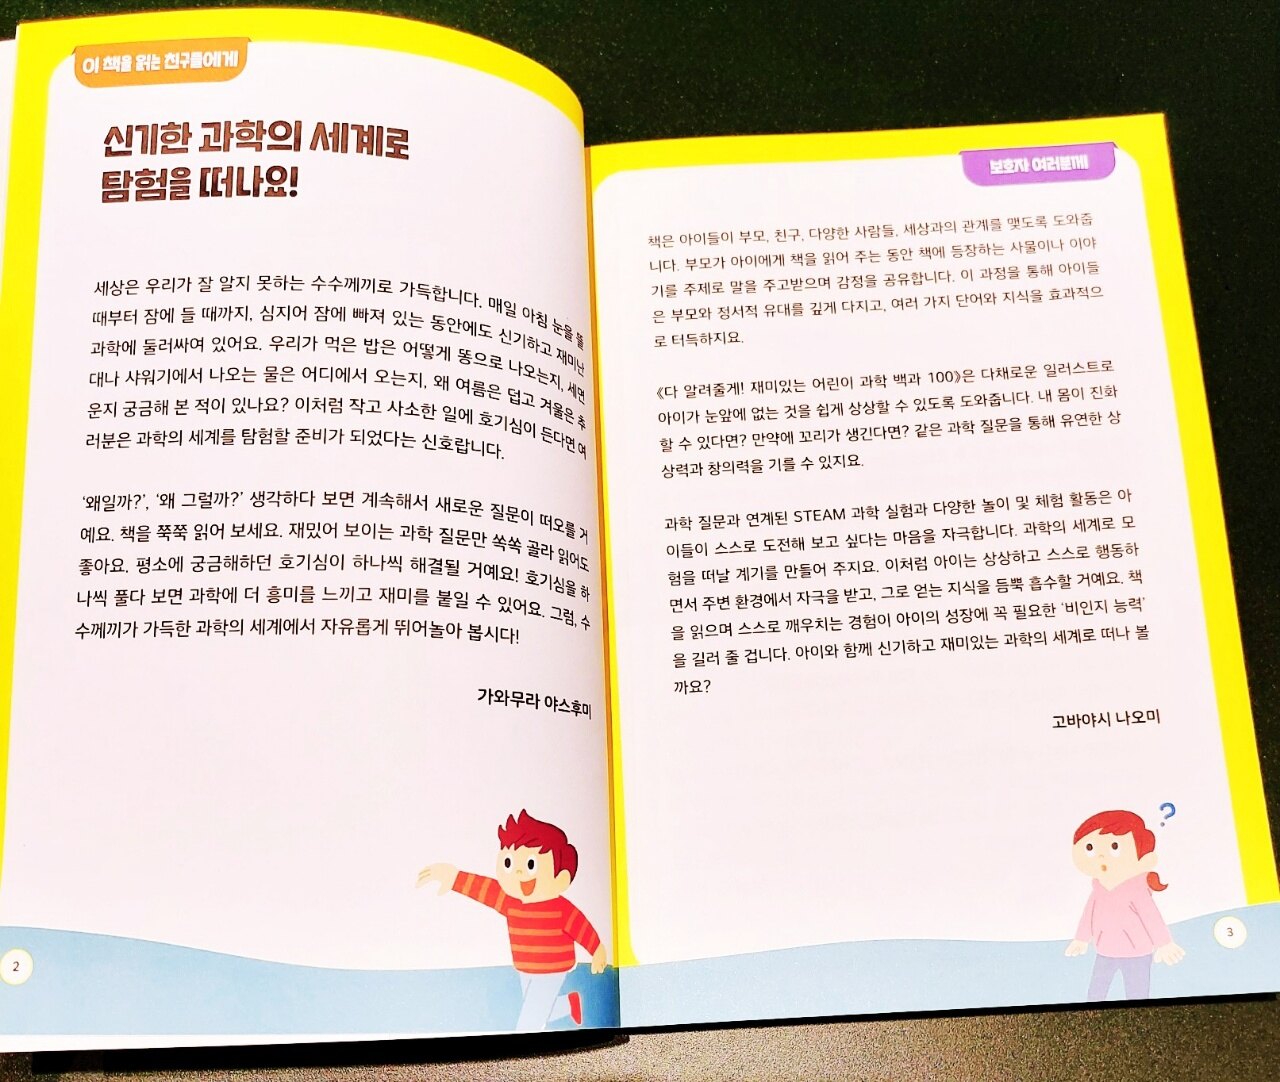 이 책을 읽는 친구들에게
신기한 과학의 세계로
탐험을 떠나요!
세상은 우리가 잘 알지 못하는 수수께끼로 가득합니다. 매일 아침 눈을 뜰
때부터 잠에 들 때까지, 심지어 잠에 빠져 있는 동안에도 신기하고 재미난
과학에 둘러싸여 있어요. 우리가 먹은 밥은 어떻게 똥으로 나오는지, 세면
대나 샤워기에서 나오는 물은 어디에서 오는지, 왜 여름은 덥고 겨울은 추
운지 궁금해 본 적이 있나요? 이처럼 작고 사소한 일에 호기심이 든다면 여
러분은 과학의 세계를 탐험할 준비가 되었다는 신호랍니다.
‘왜일까?’, ‘왜 그럴까?’ 생각하다 보면 계속해서 새로운 질문이 떠오를 거
예요. 책을 쭉쭉 읽어 보세요. 재밌어 보이는 과학 질문만 쏙쏙 골라 읽어도
좋아요. 평소에 궁금해하던 호기심이 하나씩 해결될 거예요! 호기심을 하
나씩 풀다 보면 과학에 더 흥미를 느끼고 재미를 붙일 수 있어요. 그럼, 수
수께끼가 가득한 과학의 세계에서 자유롭게 뛰어놀아 봅시다!
가와무라 야스후미
2
보호자 여러분께
책은 아이들이 부모, 친구, 다양한 사람들, 세상과의 관계를 맺도록 도와줍
니다. 부모가 아이에게 책을 읽어 주는 동안 책에 등장하는 사물이나 이야
기를 주제로 말을 주고받으며 감정을 공유합니다. 이 과정을 통해 아이들
은 부모와 정서적 유대를 깊게 다지고, 여러 가지 단어와 지식을 효과적으
로 터득하지요.
《다 알려줄게! 재미있는 어린이 과학 백과 100》은 다채로운 일러스트로
아이가 눈앞에 없는 것을 쉽게 상상할 수 있도록 도와줍니다. 내 몸이 진화
할 수 있다면? 만약에 꼬리가 생긴다면? 같은 과학 질문을 통해 유연한 상
상력과 창의력을 기를 수 있지요.
과학 질문과 연계된 STEAM 과학 실험과 다양한 놀이 및 체험 활동은 아
이들이 스스로 도전해 보고 싶다는 마음을 자극합니다. 과학의 세계로 모
험을 떠날 계기를 만들어 주지요. 이처럼 아이는 상상하고 스스로 행동하
면서 주변 환경에서 자극을 받고, 그로 얻는 지식을 듬뿍 흡수할 거예요. 책
을 읽으며 스스로 깨우치는 경험이 아이의 성장에 꼭 필요한 ‘비인지 능력’
을 길러 줄 겁니다. 아이와 함께 신기하고 재미있는 과학의 세계로 떠나 볼
까요?
고바야시 나오미
?
3